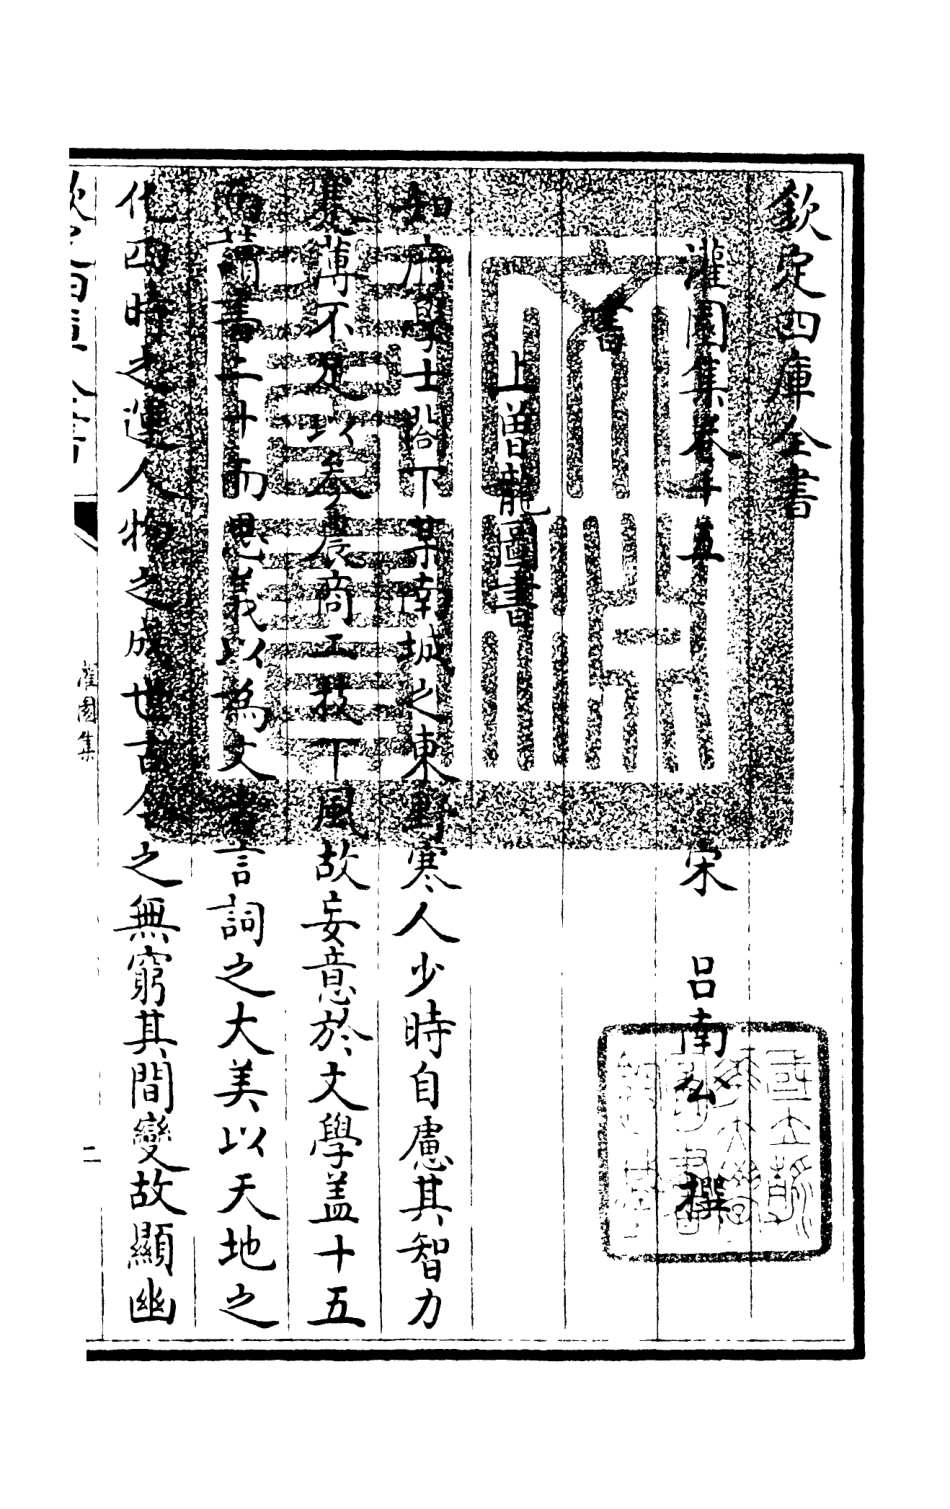 欽定四庫全書
灌園集卷十五
宋 呂南公 撰
書
上曾龍圖書
知府學士閤下某南城之東野寒人少時自慮其智力
寡薄不足以參農商工技下風故妄意於文學蓋十五
而讀書二十而思義以為文者言詞之大美以天地之
化四時之運人物之成世古今之無窮其間變故顯幽
欽定四庫全書
灌園集